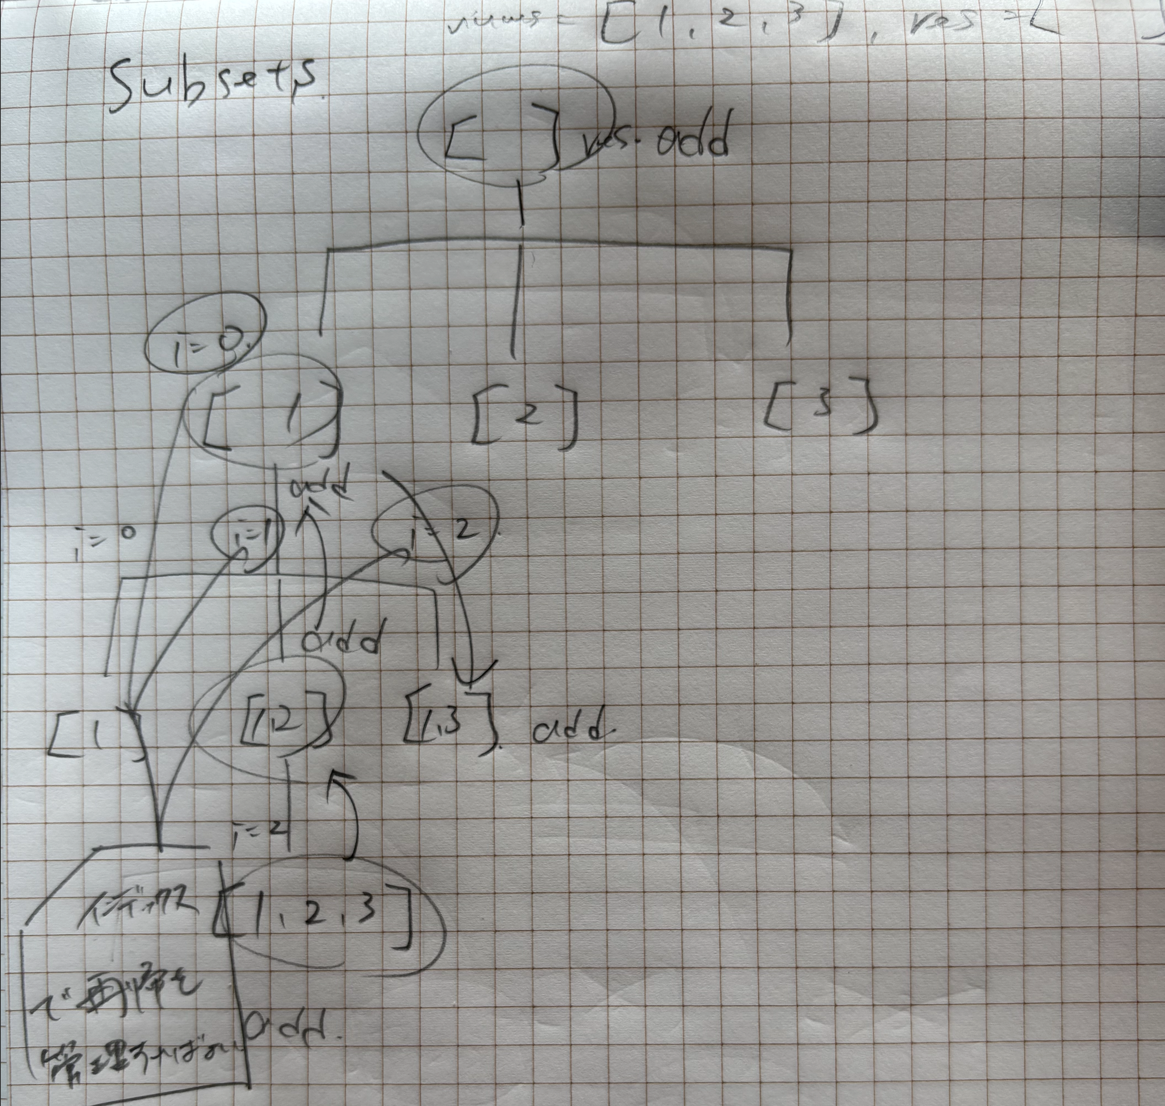 nums = [1, 2, 3], res = [ ]
Subsets.
[ ] res. add
i=0.
[ 1] [2] [3]
add
i=0 i=1 i=2.
add
[1] [1,2] [1,3]. add.
i=2
インデックス [1, 2, 3]
で再帰を
add.
管理すればいい